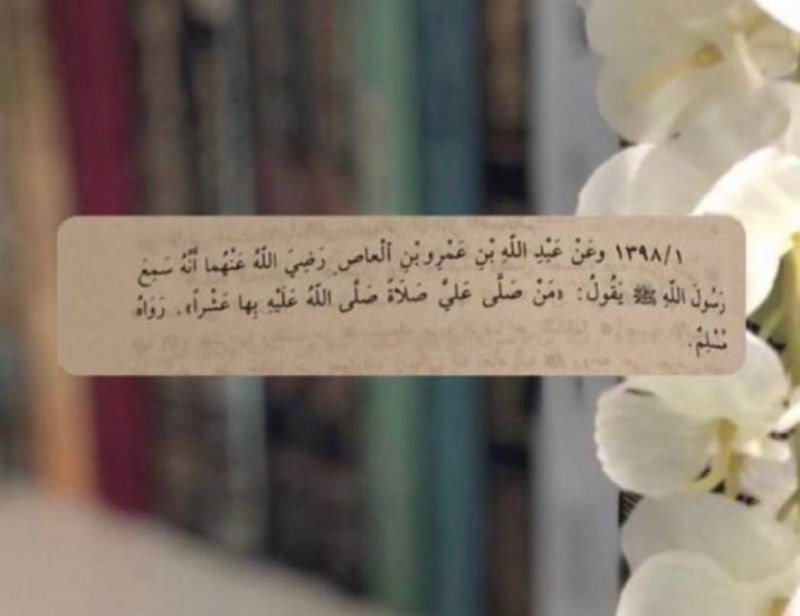 ١٣٩٨/١ وعَنْ عَبْدِ اللّهِ بْنِ عَمْرِو بْنِ ٱلْعاصِ رَضِيَ اللّهُ عَنْهُما أَنَّهُ سَمِعَ
رَسُولَ اللّهِ ﷺ يَقُولُ: «مَنْ صَلَّى عَلَيَّ صَلَاةً صَلَّى اللّهُ عَلَيْهِ بِها عَشْراً». رَوَاهُ
مُسْلِمٌ.